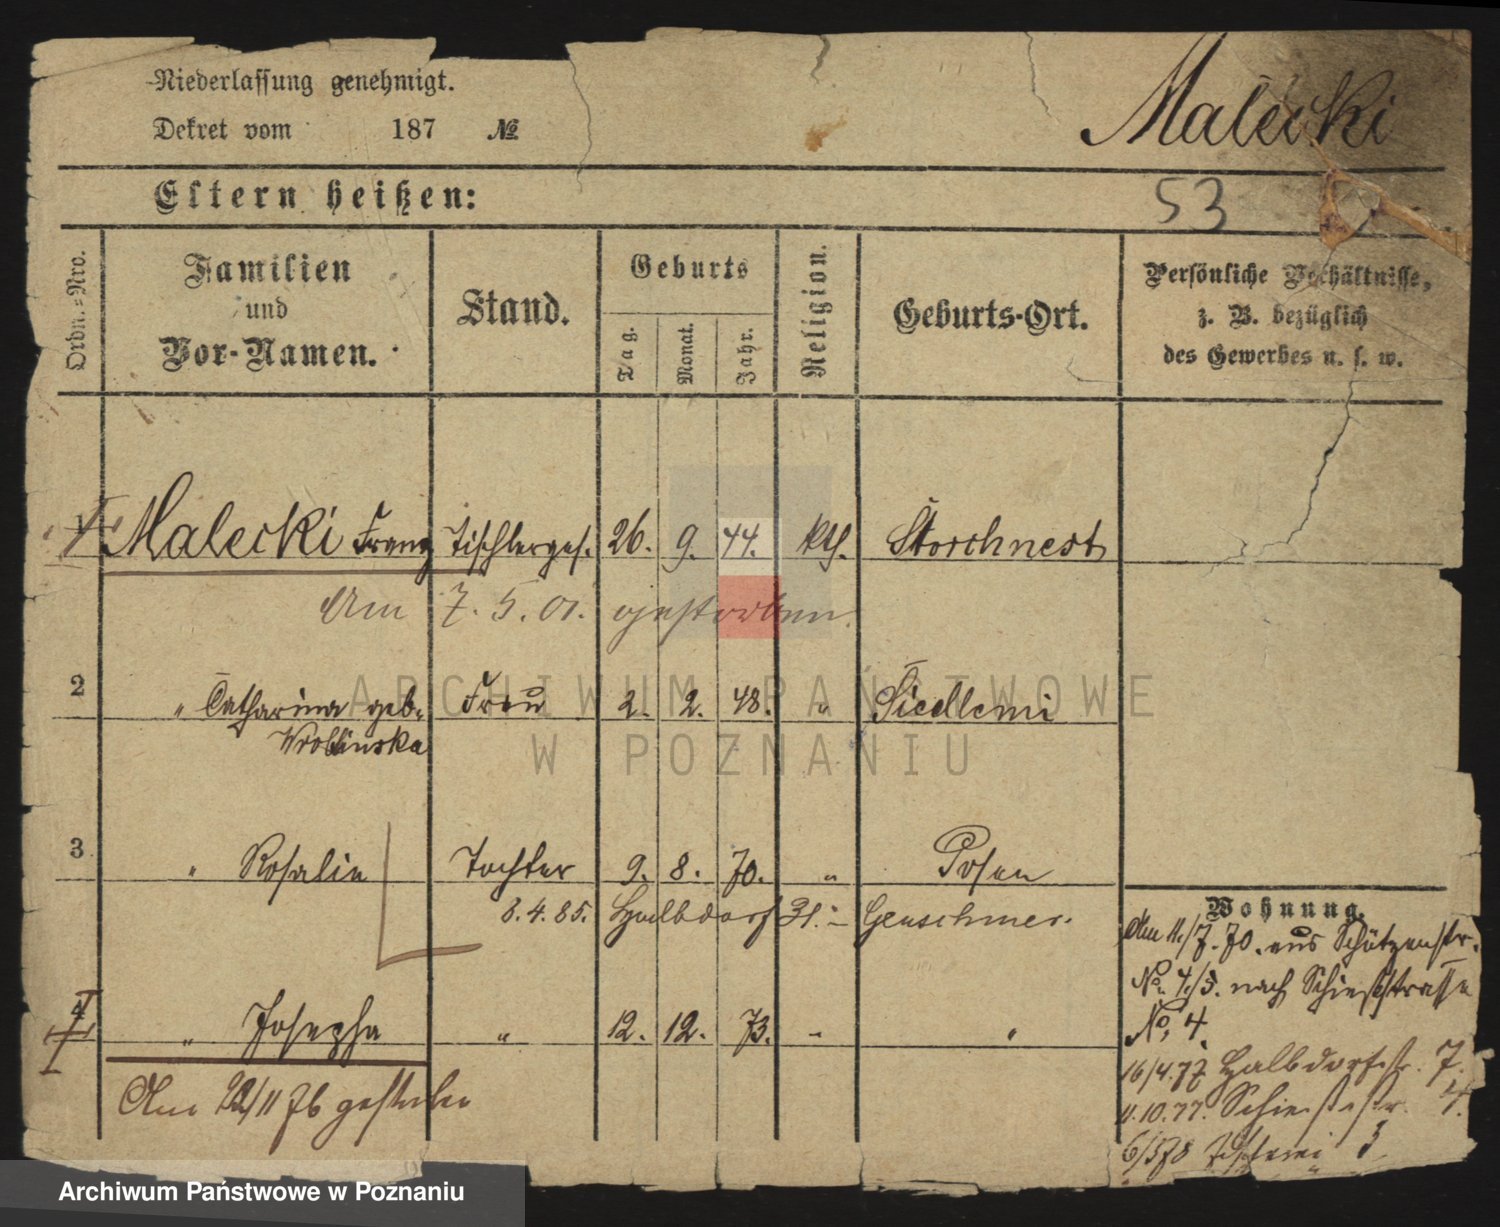 Niederlassung genehmigt.
Dekret vom 187 №
Malecki
Eltern heißen:
53
Ordn.-Nro.
Familien
und
Vor-Namen.
Stand.
Geburts
Tag.
Monat.
Jahr.
Religion.
Geburts-Ort.
Persönliche Verhältnisse,
z. B. bezüglich
des Gewerbes u. s. w.
1 Malecki Franz Tischlerges. 26. 9. 44. kth. Storchnest
Am 7. 5. 01. gestorben.
2 " Catharina geb. Frau 2. 2. 48. " Siedlemi
Wroblinska
3 " Rosalie Tochter 9. 8. 70. " Posen
8.4.85. Halbdorf 31. –
4 " Josepha " 12. 12. 73. " "
Am 22/11 76 gestorben
Wohnung.
Am 11./7. 70. aus Schützenstr.
No. 4./5. nach Schießstrasse
No. 4.
16/4.77 Halbdorfstr. 7.
11.10.77. Schießstr. 4.
6/5 78 3
ARCHIWUM PAŃSTWOWE
W POZNANIU
Archiwum Państwowe w Poznaniu